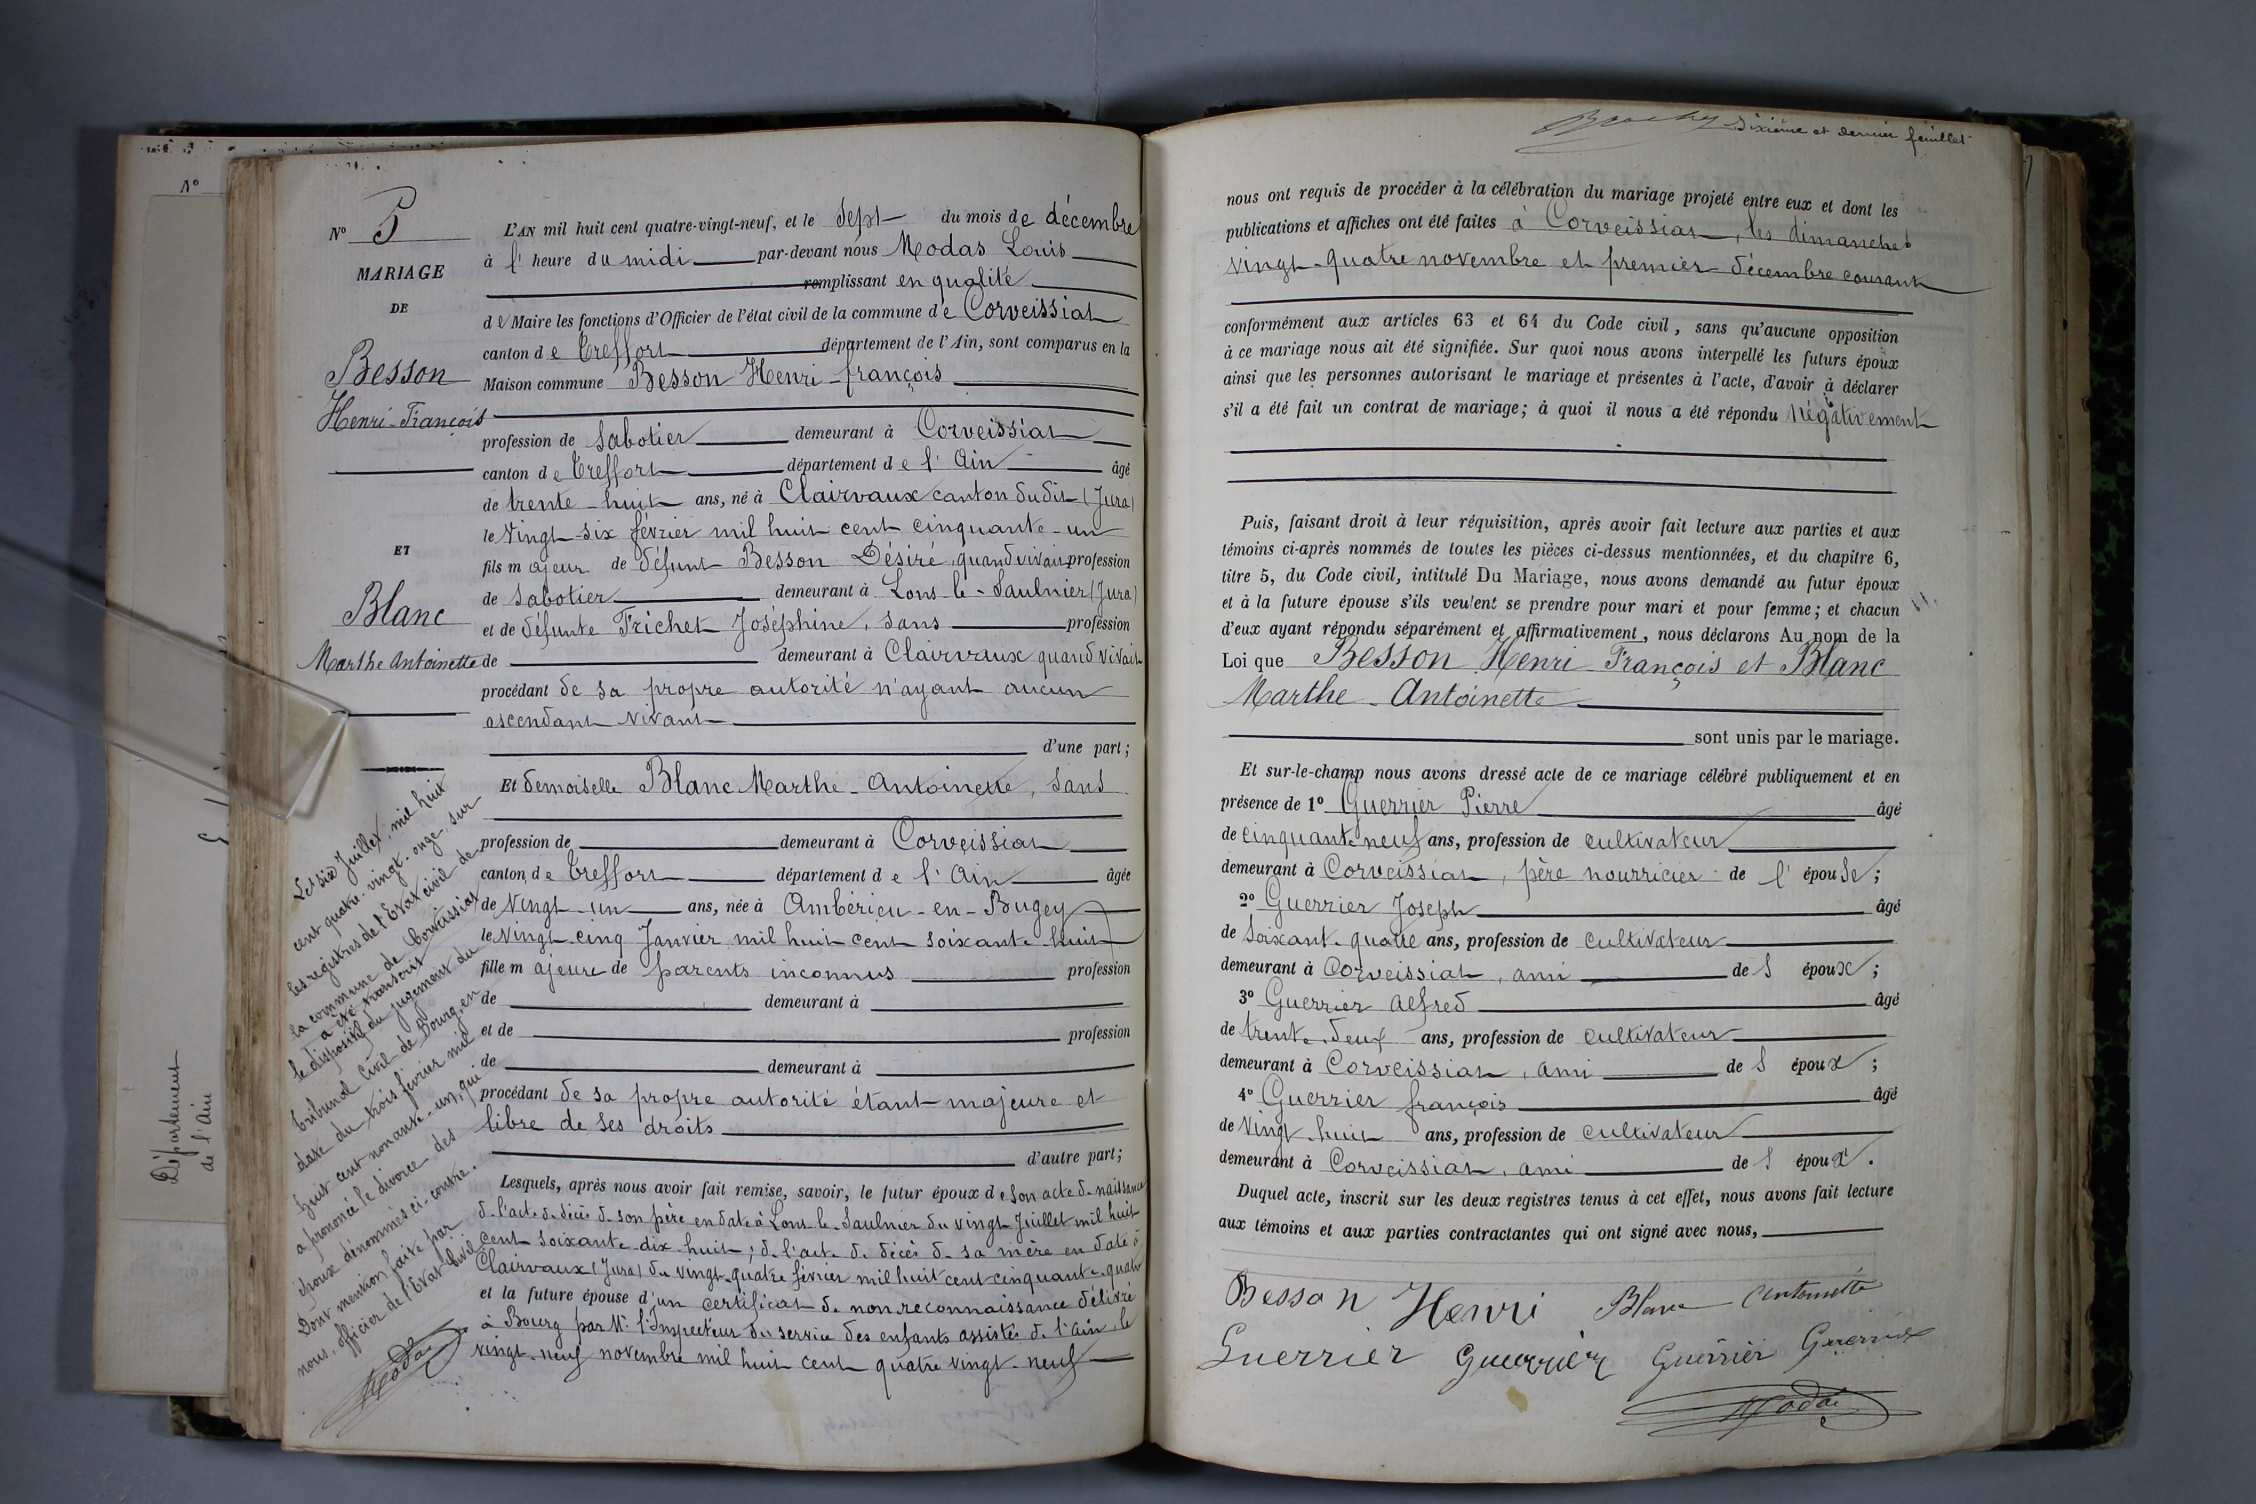 N°
Département
de l'Ain
N° 5
MARIAGE
DE
Besson
Henri-François
ET
Blanc
Marthe Antoinette
Le six Juillet mil huit
cent quatre-vingt-onze, sur
les registres de l'Etat civil de
la commune de Corveissiat
a été transcrit
le dispositif du jugement du
tribunal Civil de Bourg, en
date du trois février mil
huit cent nonante-un, qui
a prononcé le divorce des
époux dénommés ci-contre.
Dont mention faite par
nous, officier de l'Etat Civil
Modas
L'AN mil huit cent quatre-vingt-neuf, et le sept du mois de décembre
à l' heure du midi par-devant nous Modas Louis
remplissant en qualité
de Maire les fonctions d'Officier de l'état civil de la commune de Corveissiat
canton de Treffort département de l'Ain, sont comparus en la
Maison commune Besson Henri-françois
profession de Sabotier demeurant à Corveissiat
canton de Treffort département de l'Ain âgé
de trente-huit ans, né à Clairvaux canton dudit (Jura)
le vingt-six février mil huit cent cinquante-un
fils majeur de défunt Besson Désiré, quand vivait profession
de sabotier demeurant à Lons-le-Saulnier (Jura)
et de défunte Frichet Joséphine, sans profession
de demeurant à Clairvaux quand vivait
procédant de sa propre autorité n'ayant aucun
ascendant vivant
d'une part;
Et demoiselle Blanc Marthe-Antoinette, sans
profession de demeurant à Corveissiat
canton de Treffort département de l'Ain âgée
de vingt-un ans, née à Ambérieu-en-Bugey
le vingt-cinq Janvier mil huit cent soixante huit
fille majeure de parents inconnus profession
de demeurant à
et de profession
de demeurant à
procédant de sa propre autorité étant majeure et
libre de ses droits
d'autre part;
Lesquels, après nous avoir fait remise, savoir, le futur époux de son acte de naissance
de l'acte de décès de son père en date à Lons-le-Saulnier du vingt Juillet mil huit
cent soixante-dix-huit; de l'acte de décès de sa mère en date à
Clairvaux (Jura) du vingt-quatre février mil huit cent cinquante-quatre
et la future épouse d'un certificat de non reconnaissance délivré
à Bourg par Mr l'Inspecteur du service des enfants assistés de l'Ain, le
vingt-neuf novembre mil huit cent quatre vingt-neuf
sixième et dernier feuillet
nous ont requis de procéder à la célébration du mariage projeté entre eux et dont les
publications et affiches ont été faites à Corveissiat, les dimanches
vingt-quatre novembre et premier décembre courant
conformément aux articles 63 et 64 du Code civil, sans qu'aucune opposition
à ce mariage nous ait été signifiée. Sur quoi nous avons interpellé les futurs époux
ainsi que les personnes autorisant le mariage et présentes à l'acte, d'avoir à déclarer
s'il a été fait un contrat de mariage; à quoi il nous a été répondu Négativement
Puis, faisant droit à leur réquisition, après avoir fait lecture aux parties et aux
témoins ci-après nommés de toutes les pièces ci-dessus mentionnées, et du chapitre 6,
titre 5, du Code civil, intitulé Du Mariage, nous avons demandé au futur époux
et à la future épouse s'ils veulent se prendre pour mari et pour femme; et chacun
d'eux ayant répondu séparément et affirmativement, nous déclarons Au nom de la
Loi que Besson Henri François et Blanc
Marthe-Antoinette
sont unis par le mariage.
Et sur-le-champ nous avons dressé acte de ce mariage célébré publiquement et en
présence de 1° Guerrier Pierre âgé
de cinquante neuf ans, profession de cultivateur
demeurant à Corveissiat, père nourricier de l'épouse;
2° Guerrier Joseph âgé
de soixante-quatre ans, profession de cultivateur
demeurant à Corveissiat, ami des époux;
3° Guerrier Alfred âgé
de trente-deux ans, profession de cultivateur
demeurant à Corveissiat, ami des époux;
4° Guerrier françois âgé
de vingt-huit ans, profession de cultivateur
demeurant à Corveissiat, ami des époux.
Duquel acte, inscrit sur les deux registres tenus à cet effet, nous avons fait lecture
aux témoins et aux parties contractantes qui ont signé avec nous,
Besson Henri Blanc Antoinette
Guerrier Guerrier Guerrier Guerrier
Modas